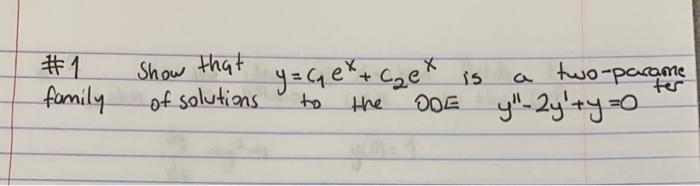 #1 Show that y = c₁eˣ + c₂eˣ is a two-parameter
family of solutions to the ODE y'' - 2y' + y = 0